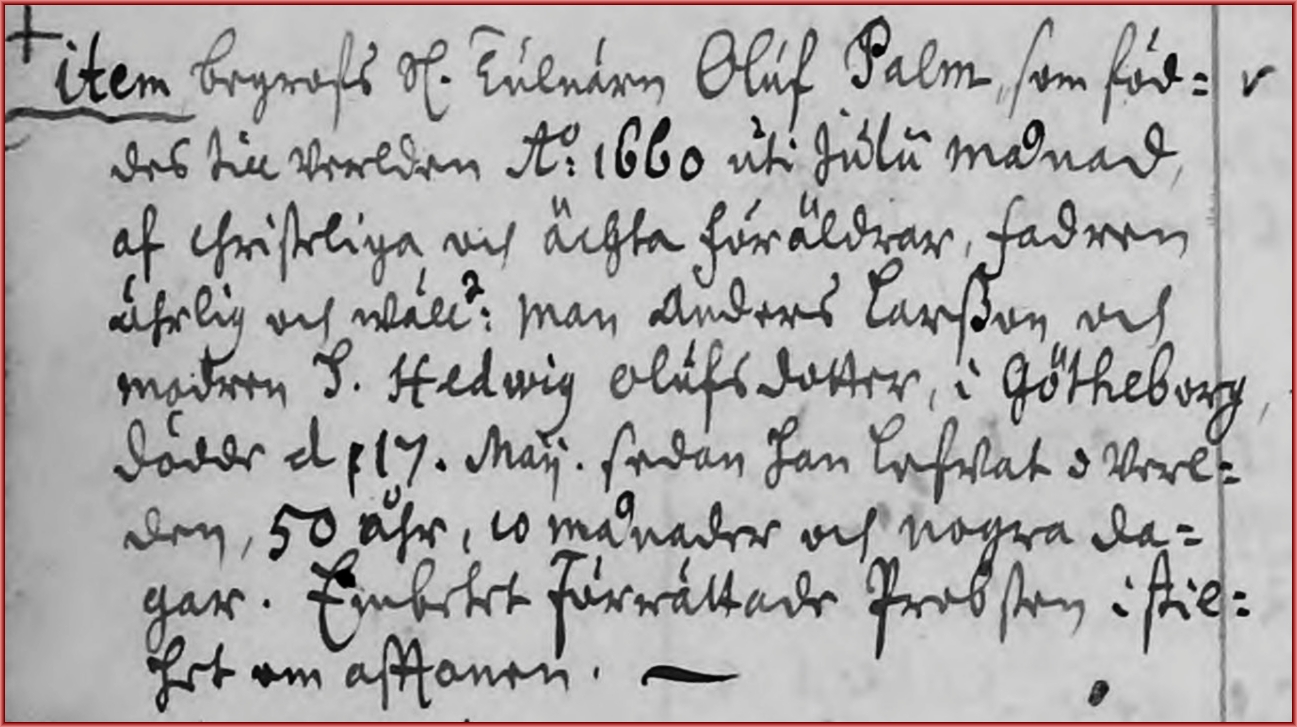 item begrofs Sl. Tulnären Oluf Palm, som föd= v
des till verlden Aº: 1660 uti Julii månad,
af christeliga och ächta föräldrar, fadren
ährlig och wäll: man Anders Larßon och
modren H. Hedwig Olufsdotter, i Götheborg,
dödde d 17. Maij. sedan han lefvat i verl=
den, 50 åhr, 10 månader och nogra da=
gar. Embetet förrättade Probsten i stil=
het om afftonen. —